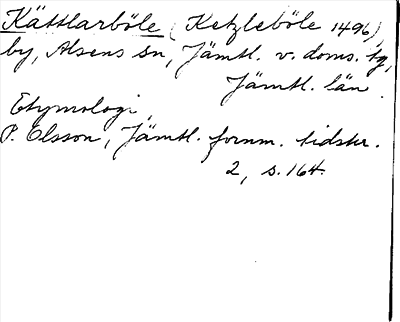 Kättlarböle (Ketzleböle 1496)
by, Alsens sn, Jämtl. v. doms. tg,
Jämtl. län.
Etymologi,
P. Olsson, Jämtl. fornm. tidskr.
2, s. 164.